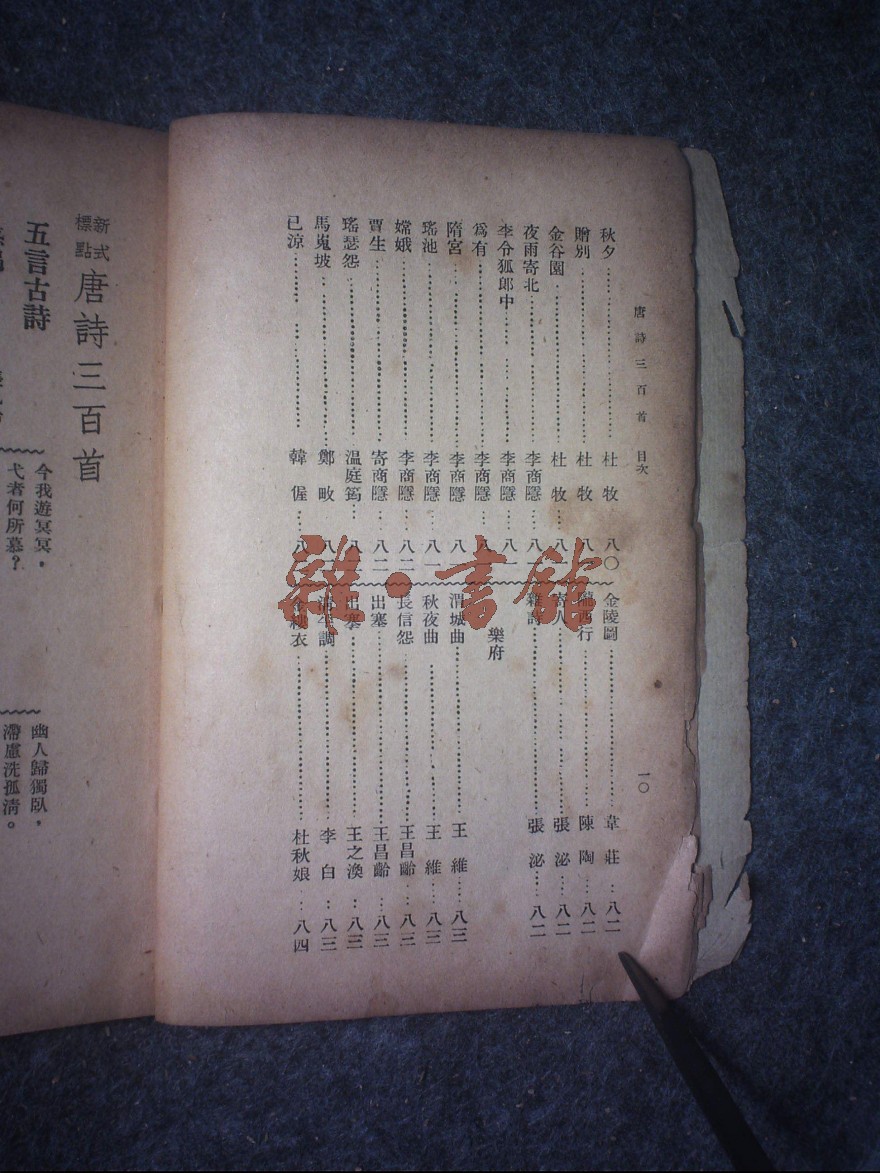 唐詩三百首 目次
一〇
秋夕 杜牧 八〇
贈別 杜牧 八
金谷園 杜牧 八一
夜雨寄北 李商隱 八一
李令狐郎中 李商隱 八一
爲有 李商隱 八
隋宮 李商隱 八
瑤池 李商隱 八一
嫦娥 李商隱 八二
賈生 寄商隱 八二
瑤瑟怨 温庭筠 八
馬嵬坡 鄭畋 八
已涼 韓偓 八
金陵圖 韋莊 八二
隴西行 陳陶 八二
寄人 張泌 八二
雜詩 張泌 八二
樂府
渭城曲 王維 八三
秋夜曲 王維 八三
長信怨 王昌齡 八三
出塞 王昌齡 八三
出塞 王之渙 八三
清平調 李白 八三
金縷衣 杜秋娘 八四
雜·書館
新式標點 唐詩三百首
五言古詩
今我遊冥冥，
弋者何所慕？
幽人歸獨臥，
滯慮洗孤淸。